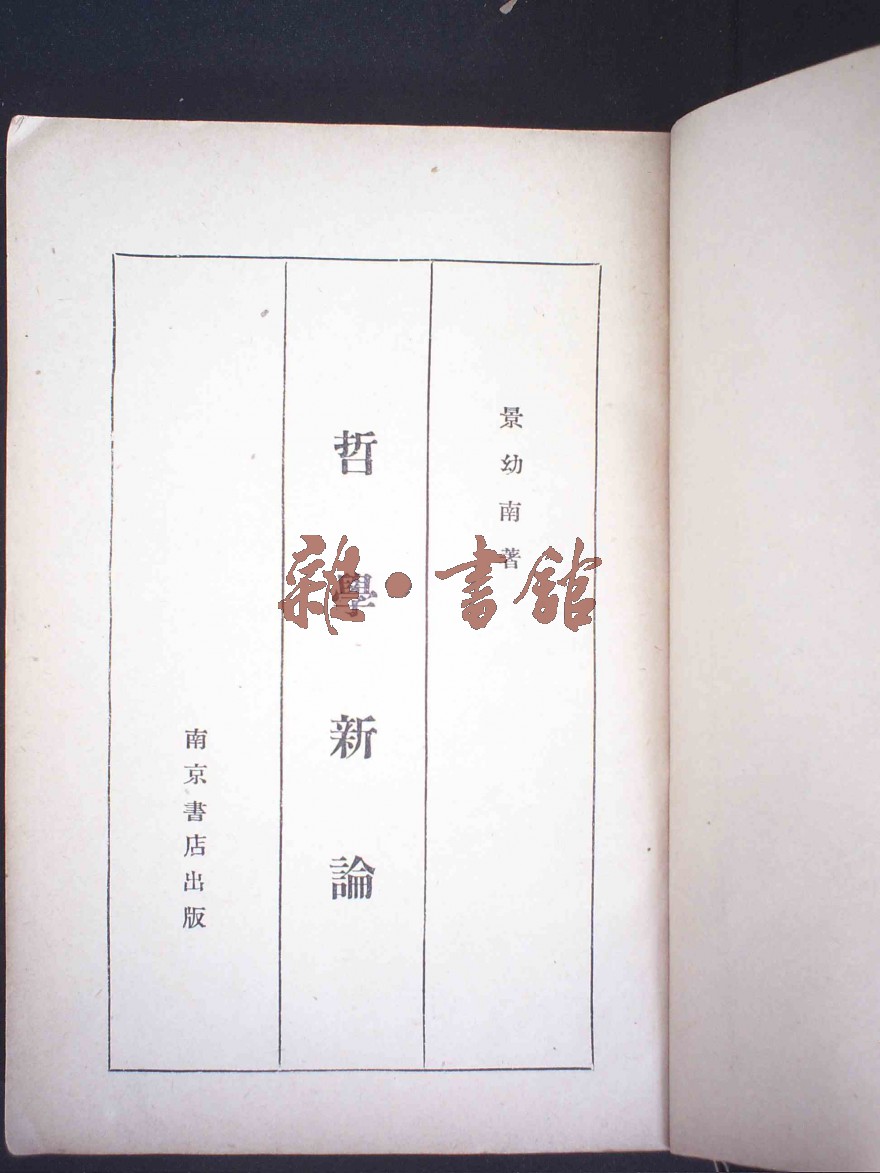 景幼南著
哲學新論
南京書店出版
雜·書館